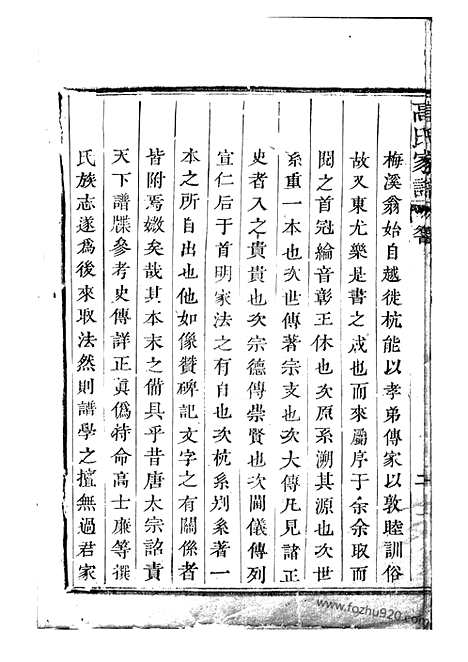 高氏家譜
梅溪翁始自越徙杭能以孝弟傳家以敦睦訓俗
故又東尤樂是書之成也而來屬序于余余取而
閱之首冠綸音彰王休也次原系溯其源也次世
系重一本也次世傳著宗支也次大傳凡見諸正
史者入之貴貴也次宗德傳崇賢也次閫儀傳列
宣仁后于首明家法之有自也次杭系别系著一
本之所自出也他如像贊碑記文字之有關係者
皆附焉媺矣哉其本末之備具乎昔唐太宗詔責
天下譜牒參考史傳詳正真偽特命高士廉等撰
氏族志遂爲後來取法然則譜學之擅無過君家
www.fozhu920.com